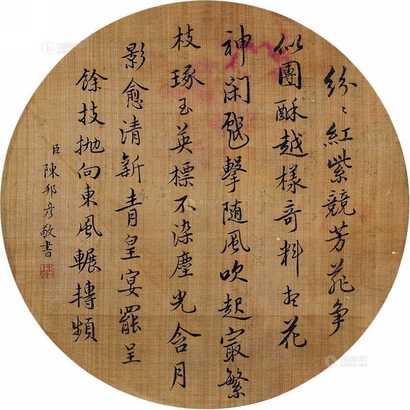 紛〻紅紫競芳菲爭
似團酥越樣奇料想花
神閑戲擊隨風吹起最繁
枝琢玉英標不染塵光含月
影愈清新青皇宴罷呈
餘技拋向東風輾轉頻
臣陳邦彥敬書